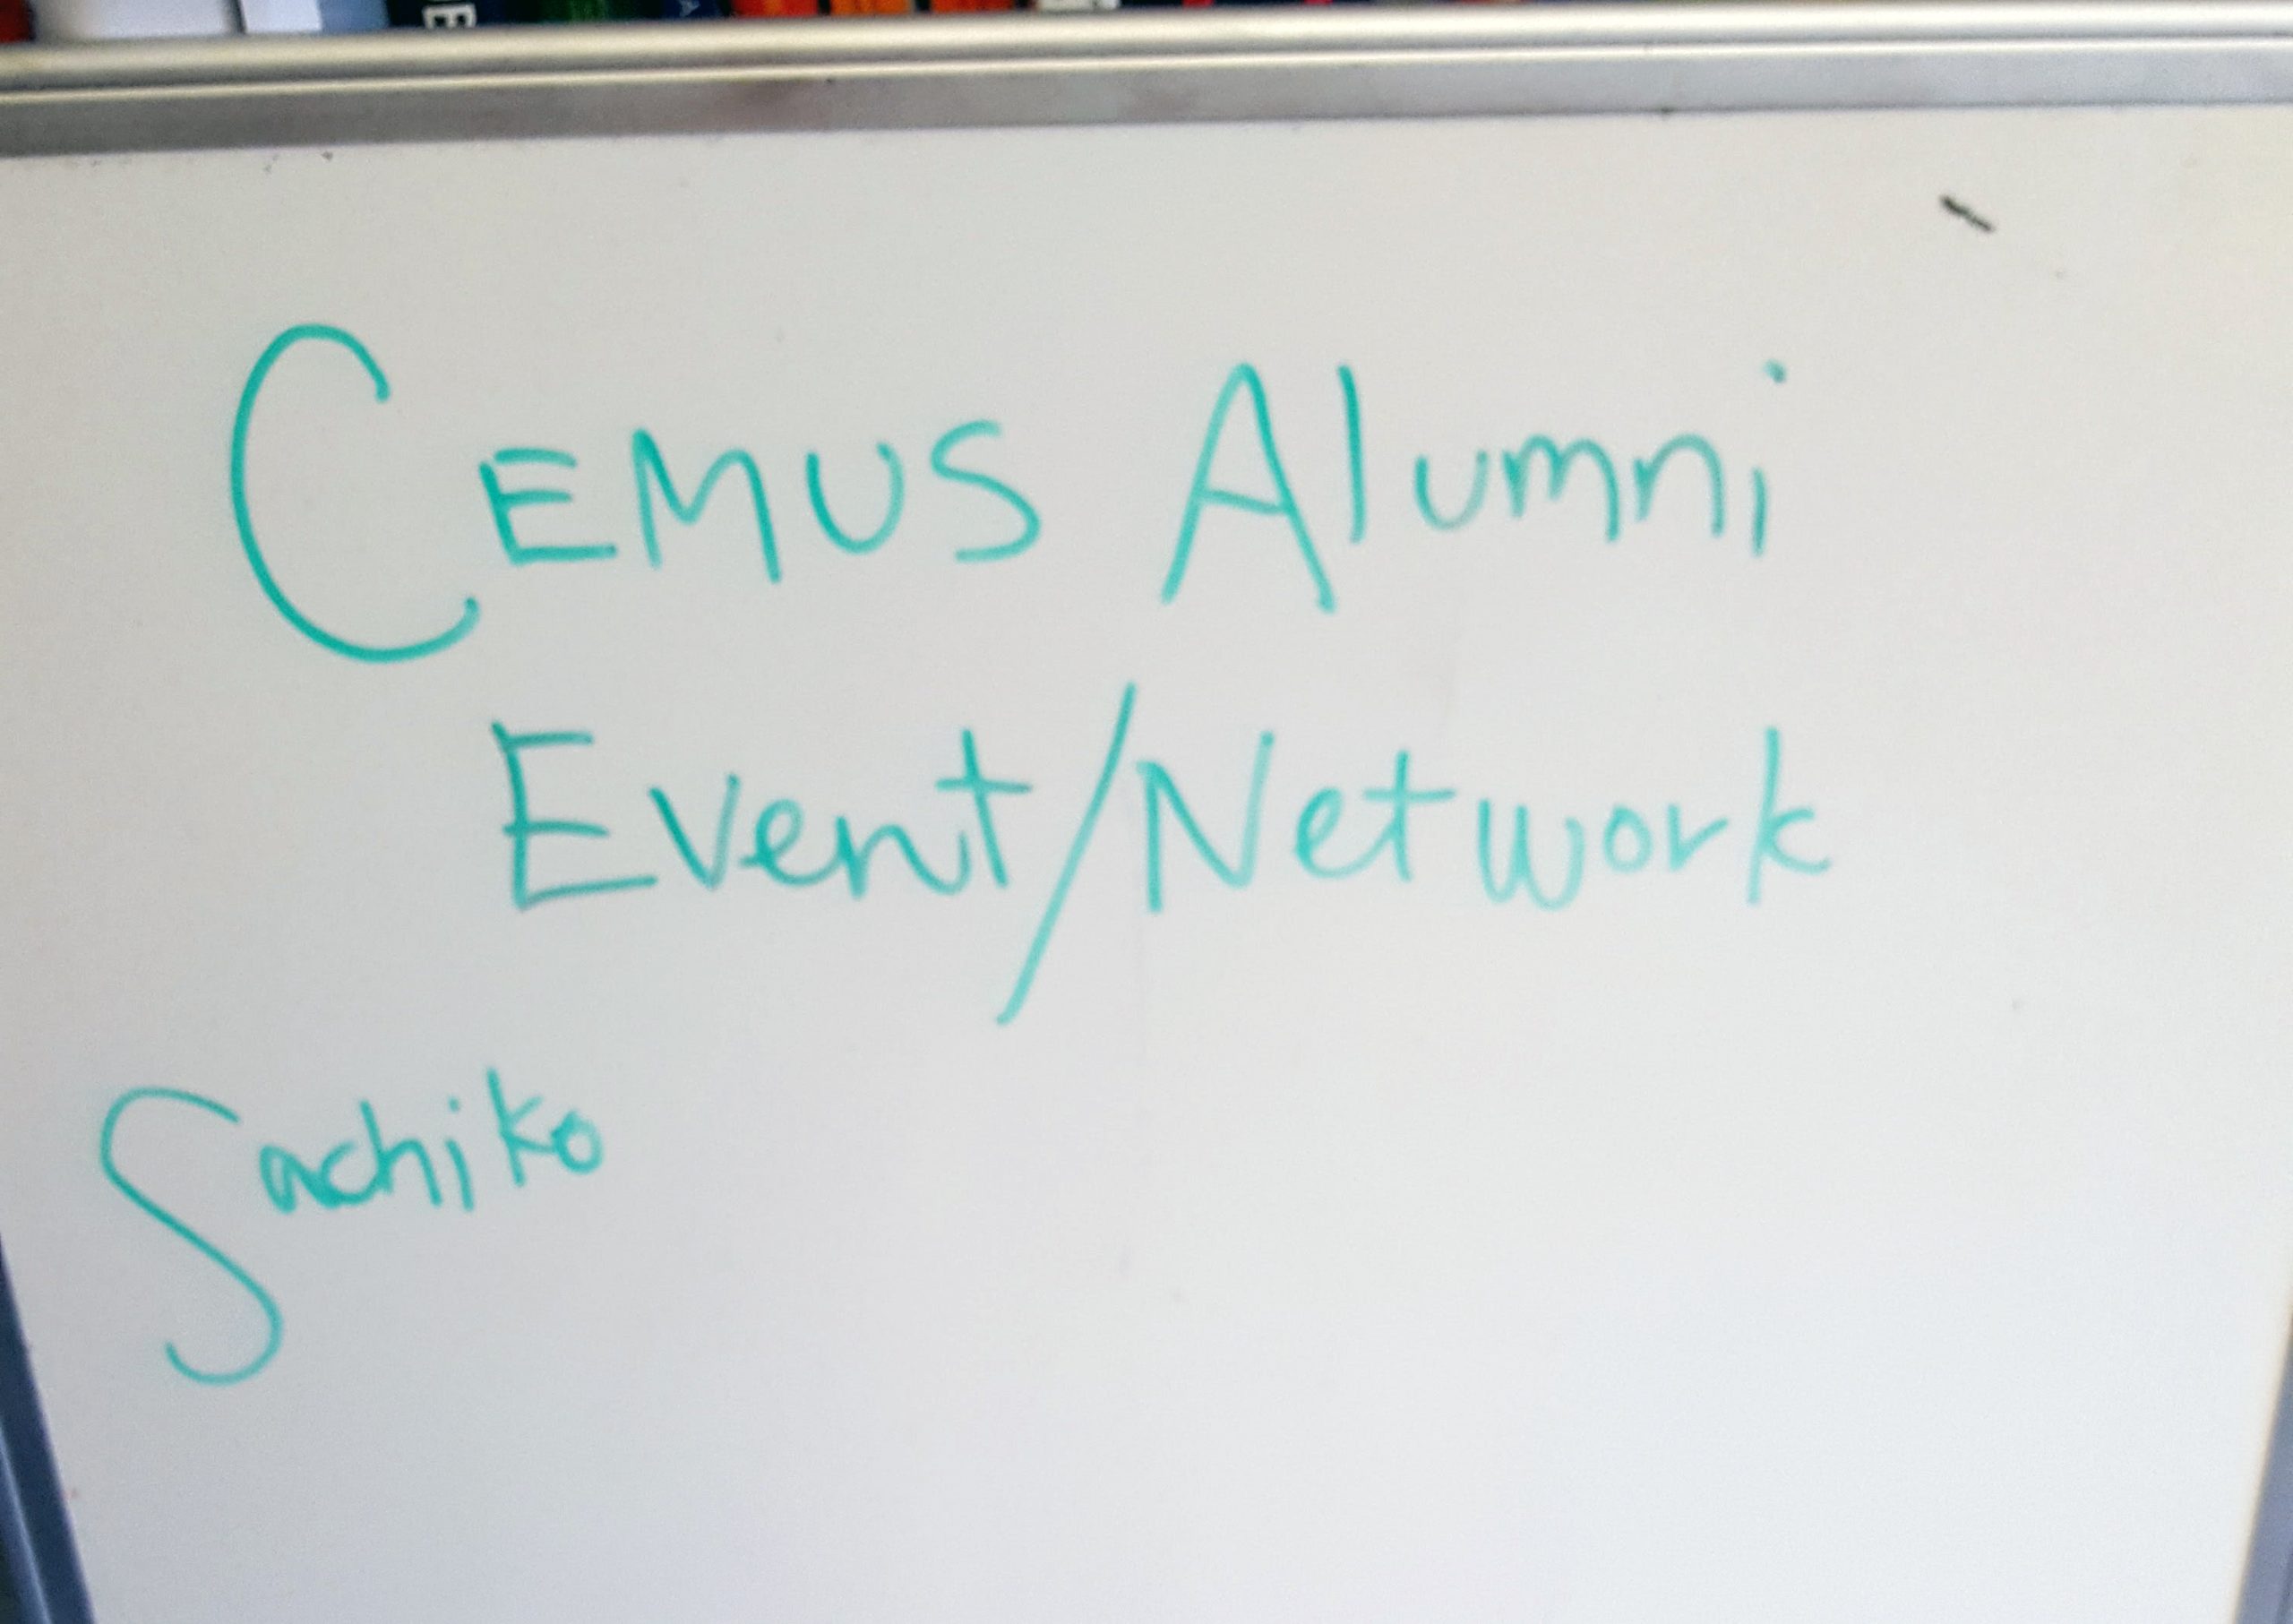 CEMUS Alumni
Event/Network
Sachiko